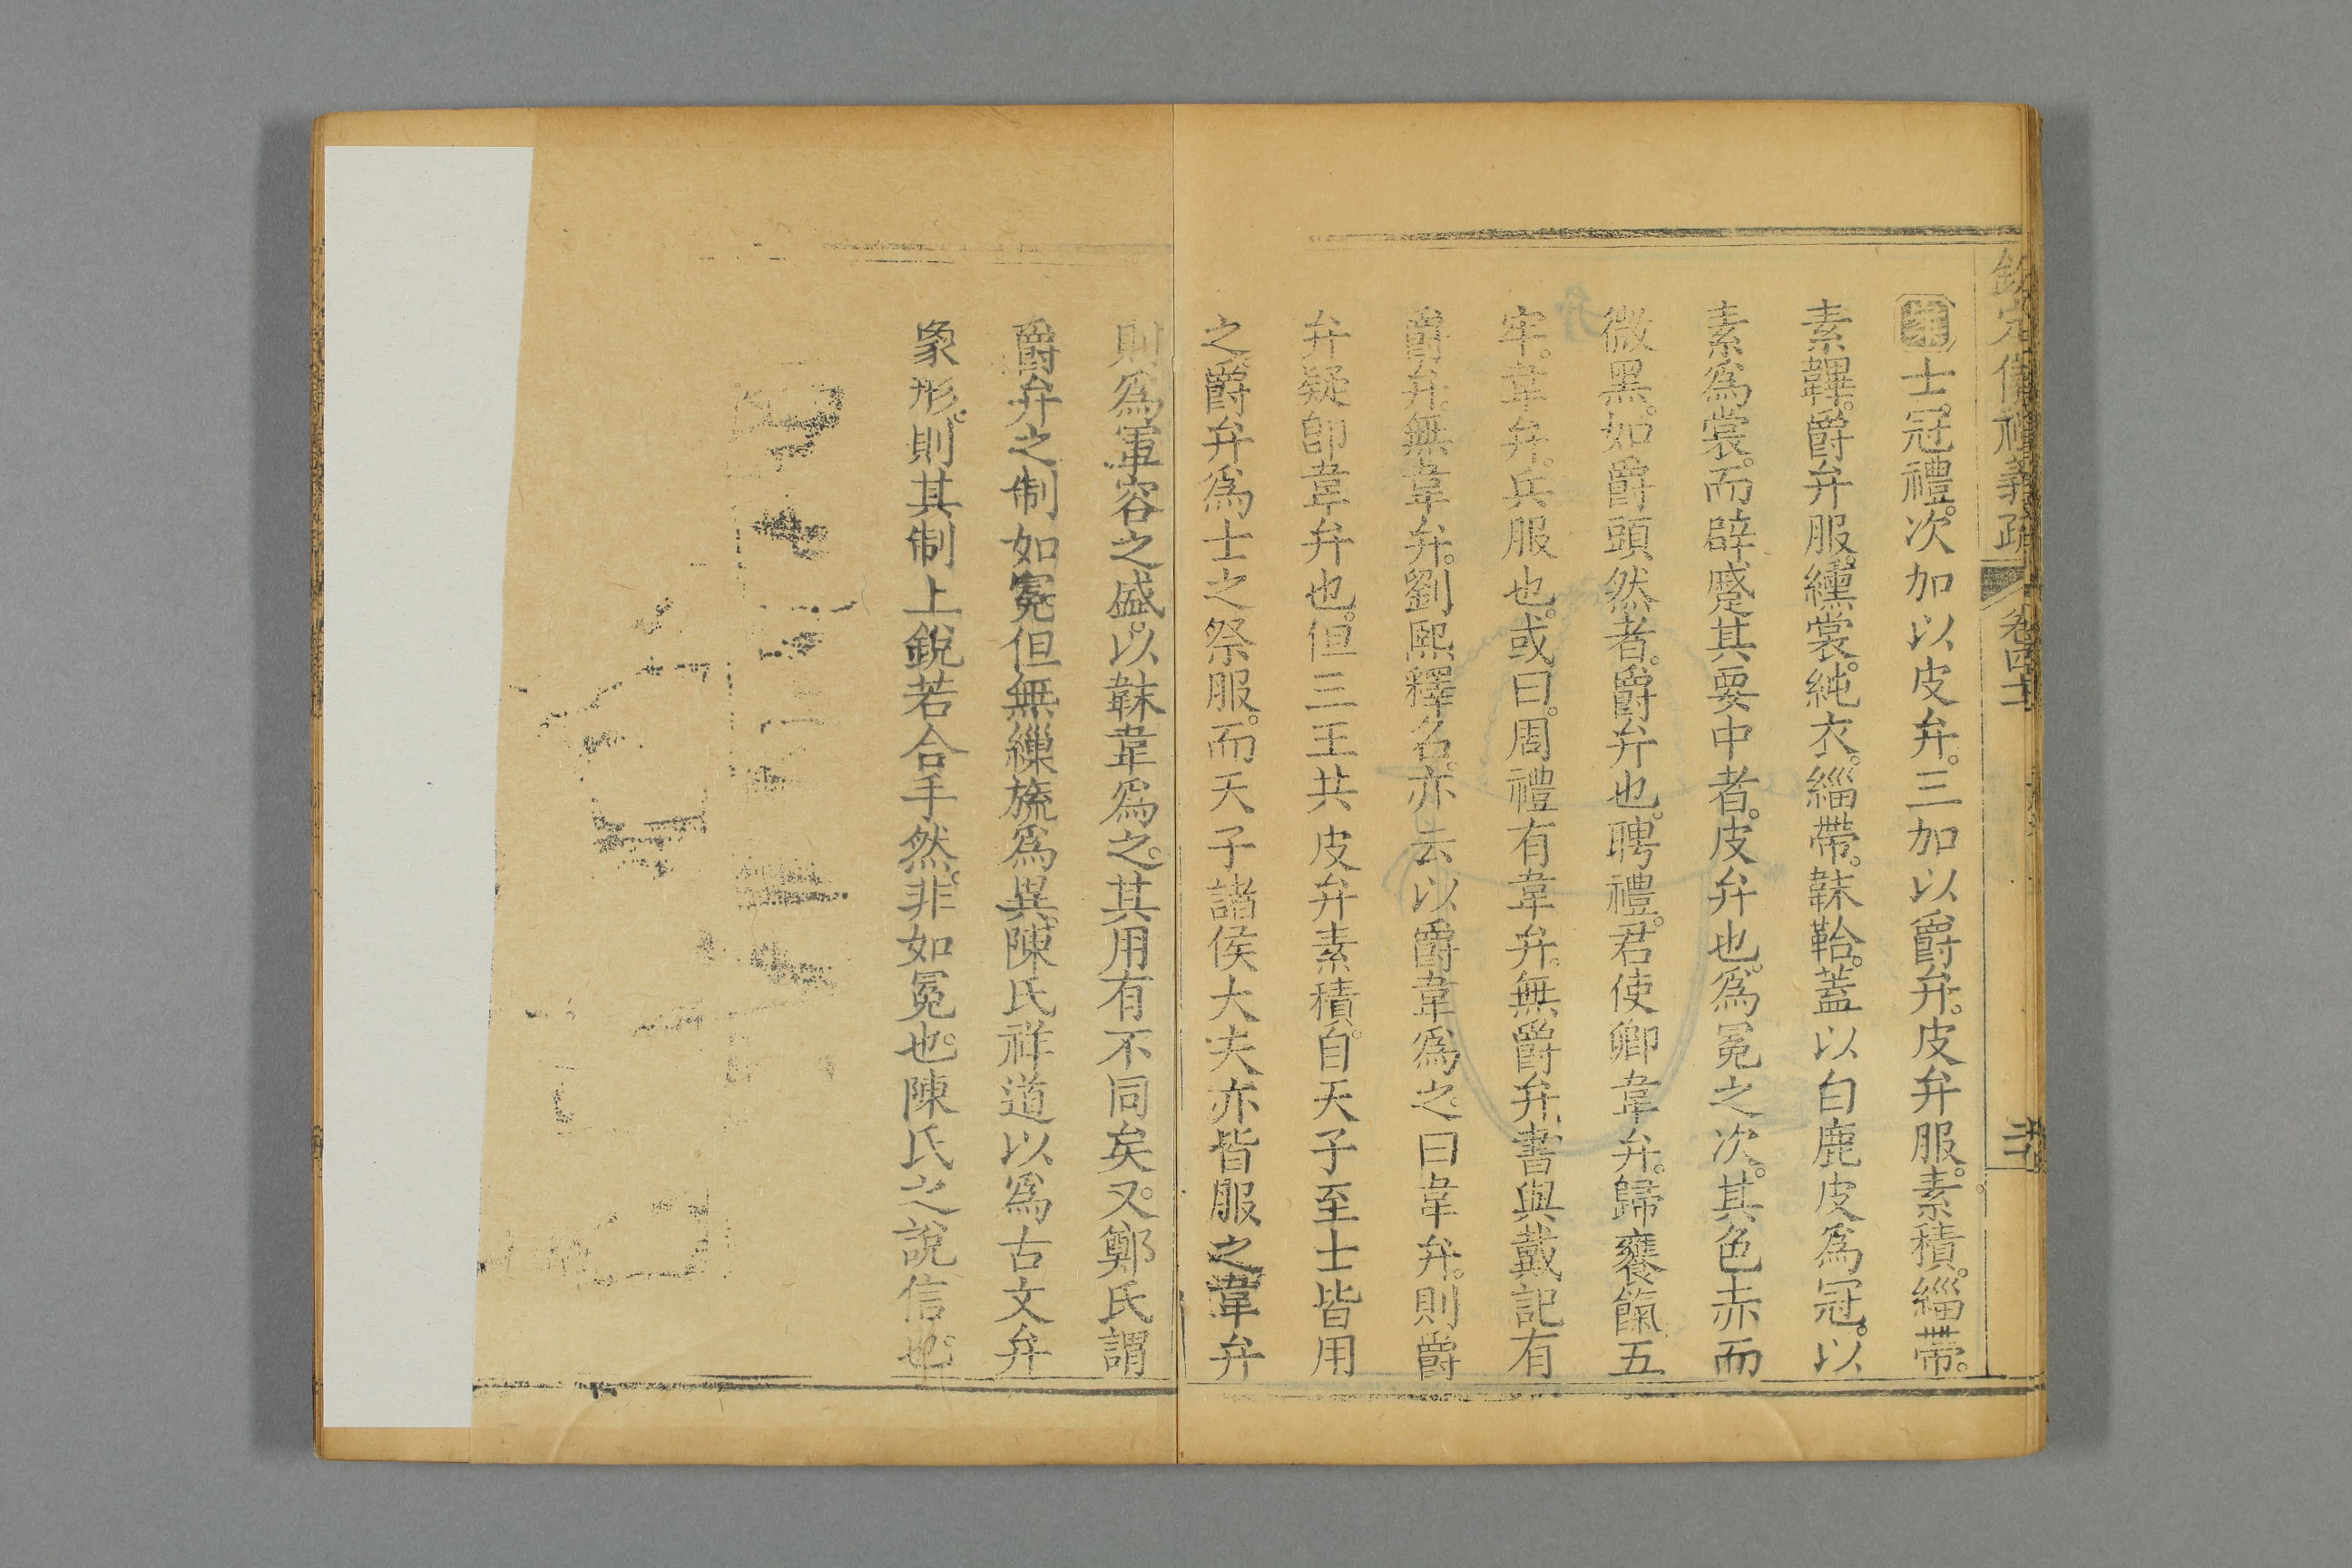 欽定儀禮義疏 卷四十
士冠禮。次加以皮弁。三加以爵弁。皮弁服。素積。緇帶。
素韠。爵弁服。纁裳。純衣。緇帶。韎韐。蓋以白鹿皮爲冠。以
素爲裳。而辟蹙其要中者。皮弁也。爲冕之次。其色赤而
微黑。如爵頭然者。爵弁也。聘禮。君使卿韋弁。歸饔餼五
牢。韋弁。兵服也。或曰。周禮有韋弁。無爵弁。書與戴記有
爵弁。無韋弁。劉熙釋名。亦云以爵韋爲之。曰韋弁。則爵
弁疑卽韋弁也。但三王共皮弁素積。自天子至士皆用
之。爵弁爲士之祭服。而天子諸侯大夫亦皆服之。韋弁
則爲軍容之盛。以韎韋爲之。其用有不同矣。又鄭氏謂
爵弁之制如冕。但無繅旒爲異。陳氏祥道以爲古文弁
象形。則其制上銳若合手然。非如冕也。陳氏之說信也。